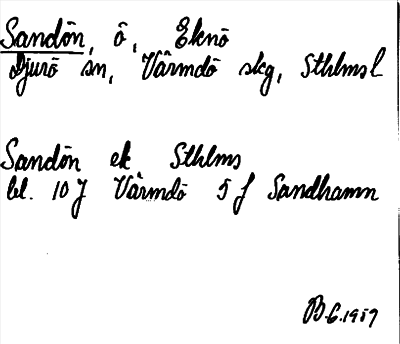 Sandön, ö, Eknö
Djurö sn, Värmdö skg, Sthlms l
Sandön ek Sthlms
bl. 10 J Värmdö 5 f Sandhamn
B.G.1957